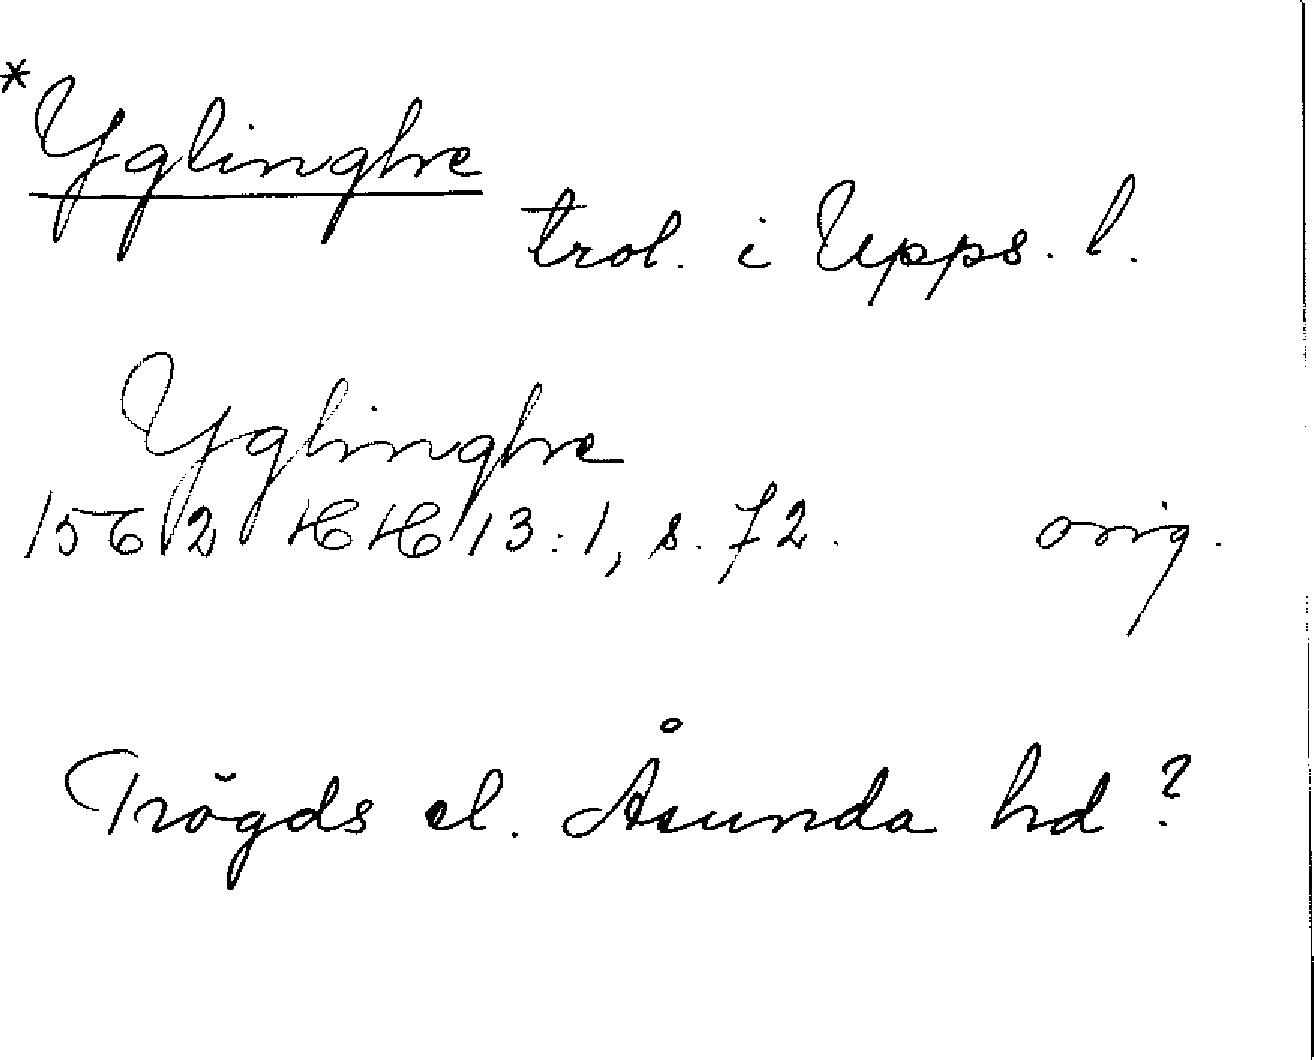 *Yglinghe
trol. i Upps. l.
Yglinghe
1562 HH 13:1, s. 72. orig.
Trögds el. Åsunda hd?